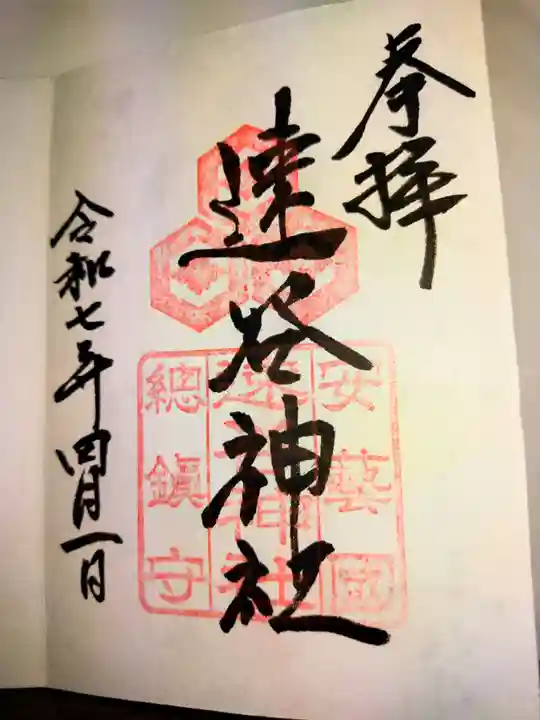 奉拝
速谷神社
安藝國
速谷神社
總鎮守
令和七年四月一日